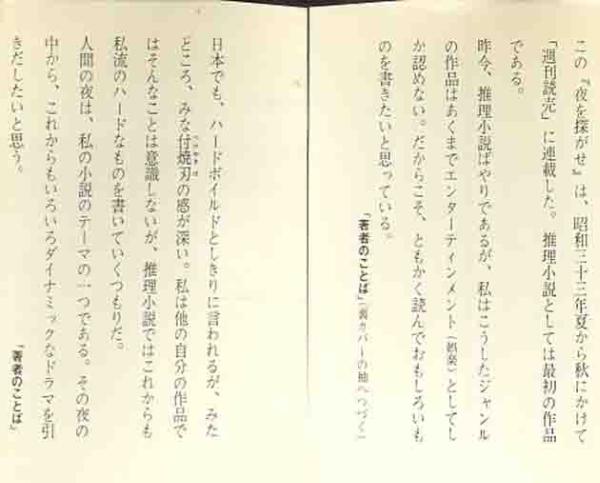 この『夜を探がせ』は、昭和三十三年夏から秋にかけて
「週刊読売」に連載した。推理小説としては最初の作品
である。
昨今、推理小説ばやりであるが、私はこうしたジャンル
の作品はあくまでエンターティンメント(娯楽)としてし
か認めない。だからこそ、ともかく読んでおもしろいも
のを書きたいと思っている。
「著者のことば」(裏カバーの袖へつづく)
日本でも、ハードボイルドとしきりに言われるが、みた
ところ、みな付焼刃の感が深い。私は他の自分の作品で
はそんなことは意識しないが、推理小説ではこれからも
私流のハードなものを書いていくつもりだ。
人間の夜は、私の小説のテーマの一つである。その夜の
中から、これからもいろいろダイナミックなドラマを引
きだしたいと思う。
「著者のことば」